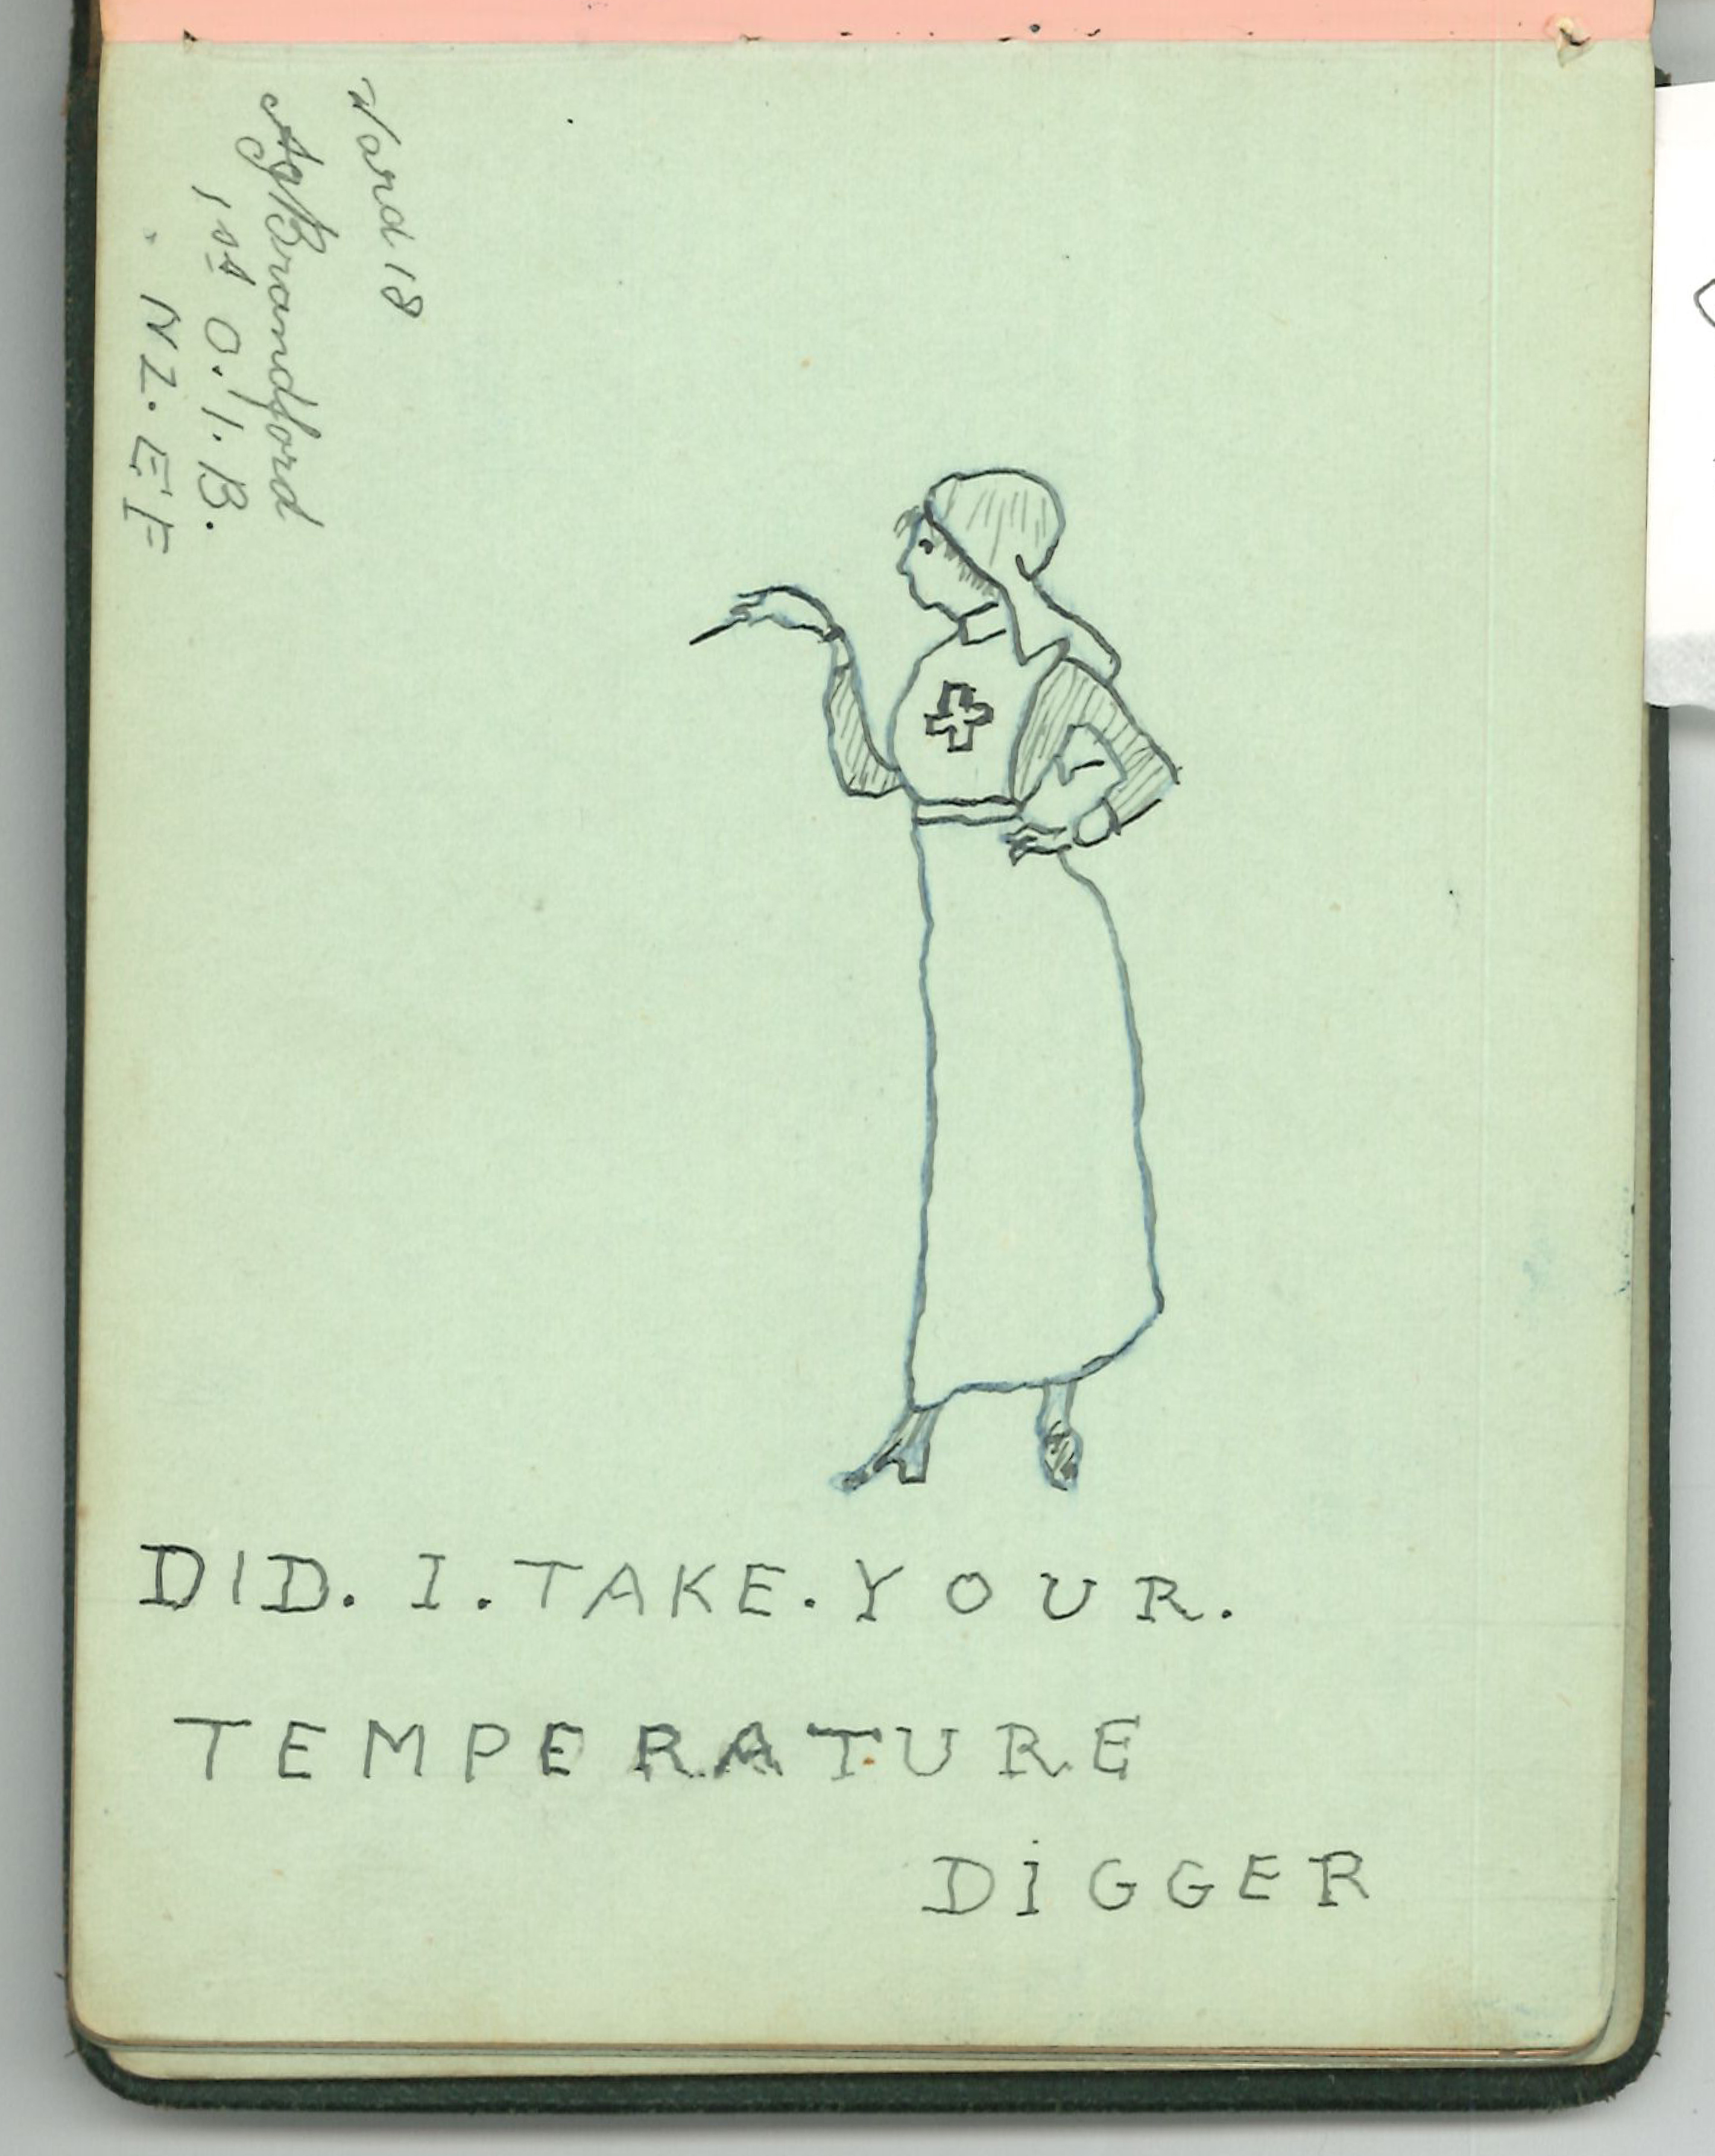 Ward 18
A G Brandford
1st O.I.B.
N Z. E F
DID. I. TAKE. YOUR.
TEMPERATURE
DiGGER